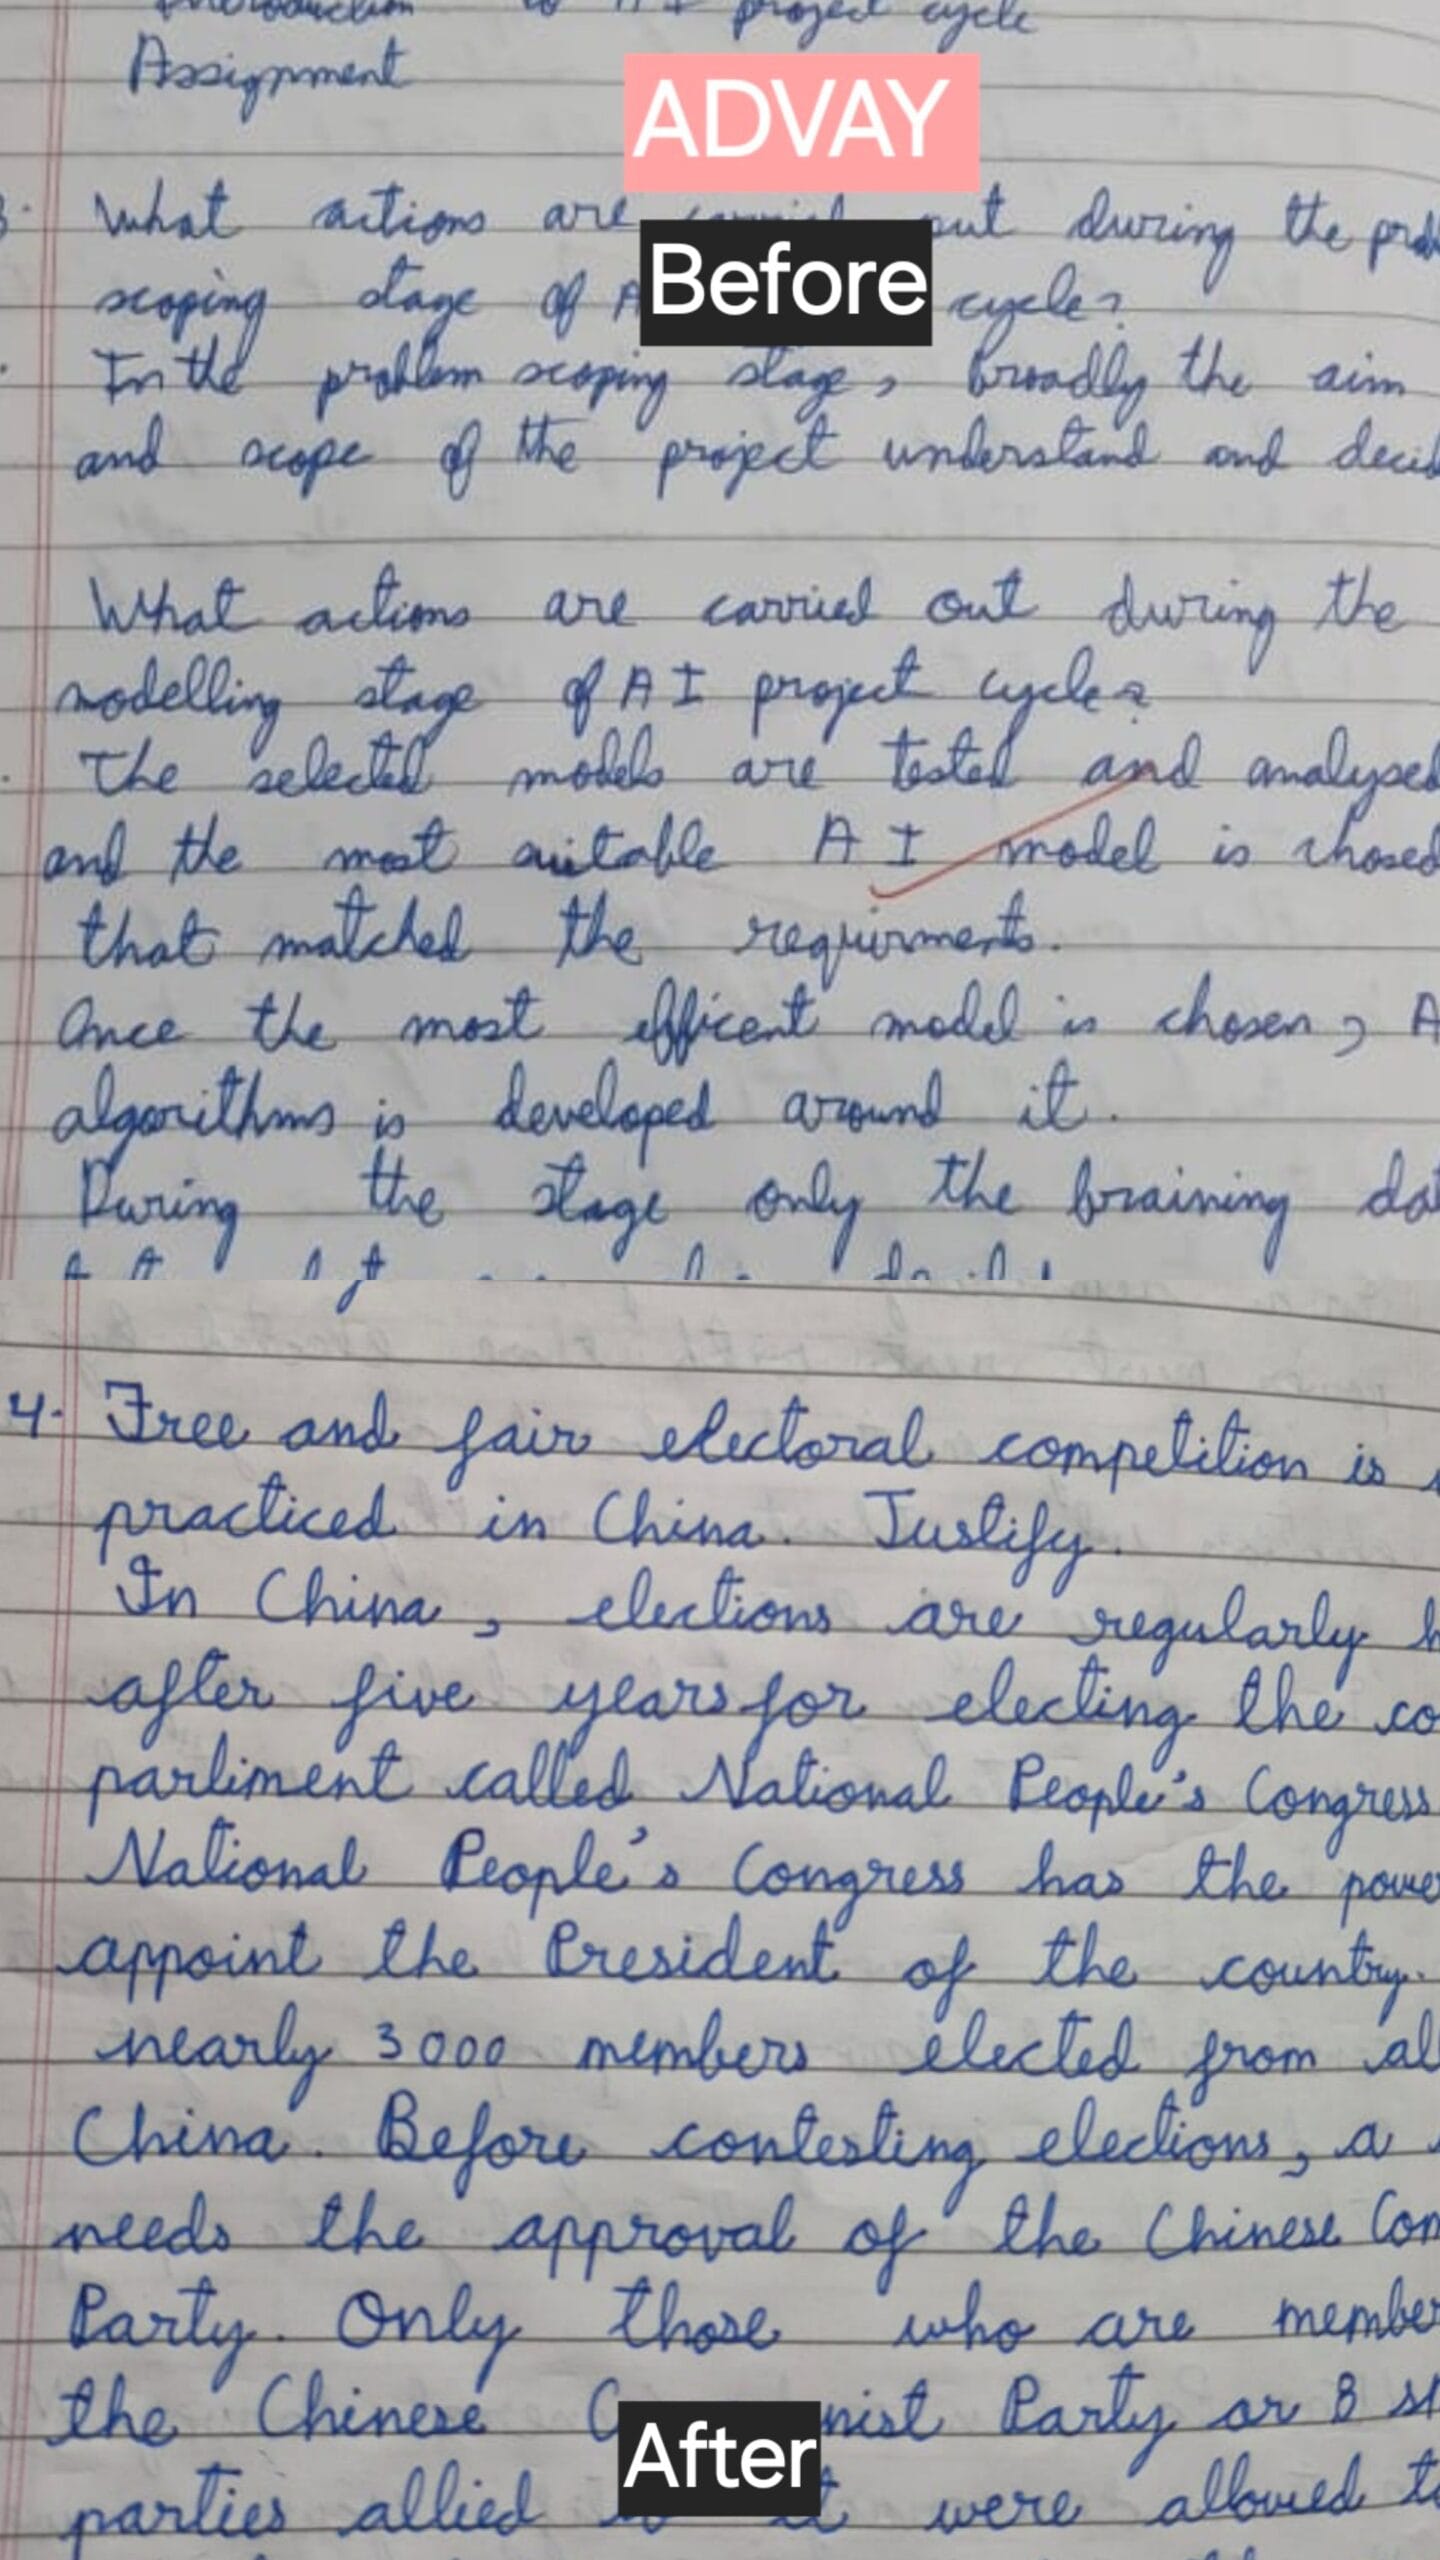 Introduction to AI project cycle
Assignment
ADVAY
What actions are carried out during the
scoping stage of A cycle?
Before
In the problem scoping stage, broadly the aim
and scope of the project understand and
What actions are carried out during the
modelling stage of AI project cycle?
The selected models are tested and analysed
and the most suitable AI model is chosed
that matched the requirments.
Once the most efficent model is chosen, A
algorithms is developed around it.
During the stage only the braining
4. Free and fair electoral competition is
practiced in China. Justify.
In China, elections are regularly
after five years for electing the
parliment called National People's Congress
National People's Congress has the
appoint the President of the country.
nearly 3000 members elected from
China. Before contesting elections, a
needs the approval of the Chinese
Party. Only those who are
the Chinese nist Party or 8
After
parties allied were allowed